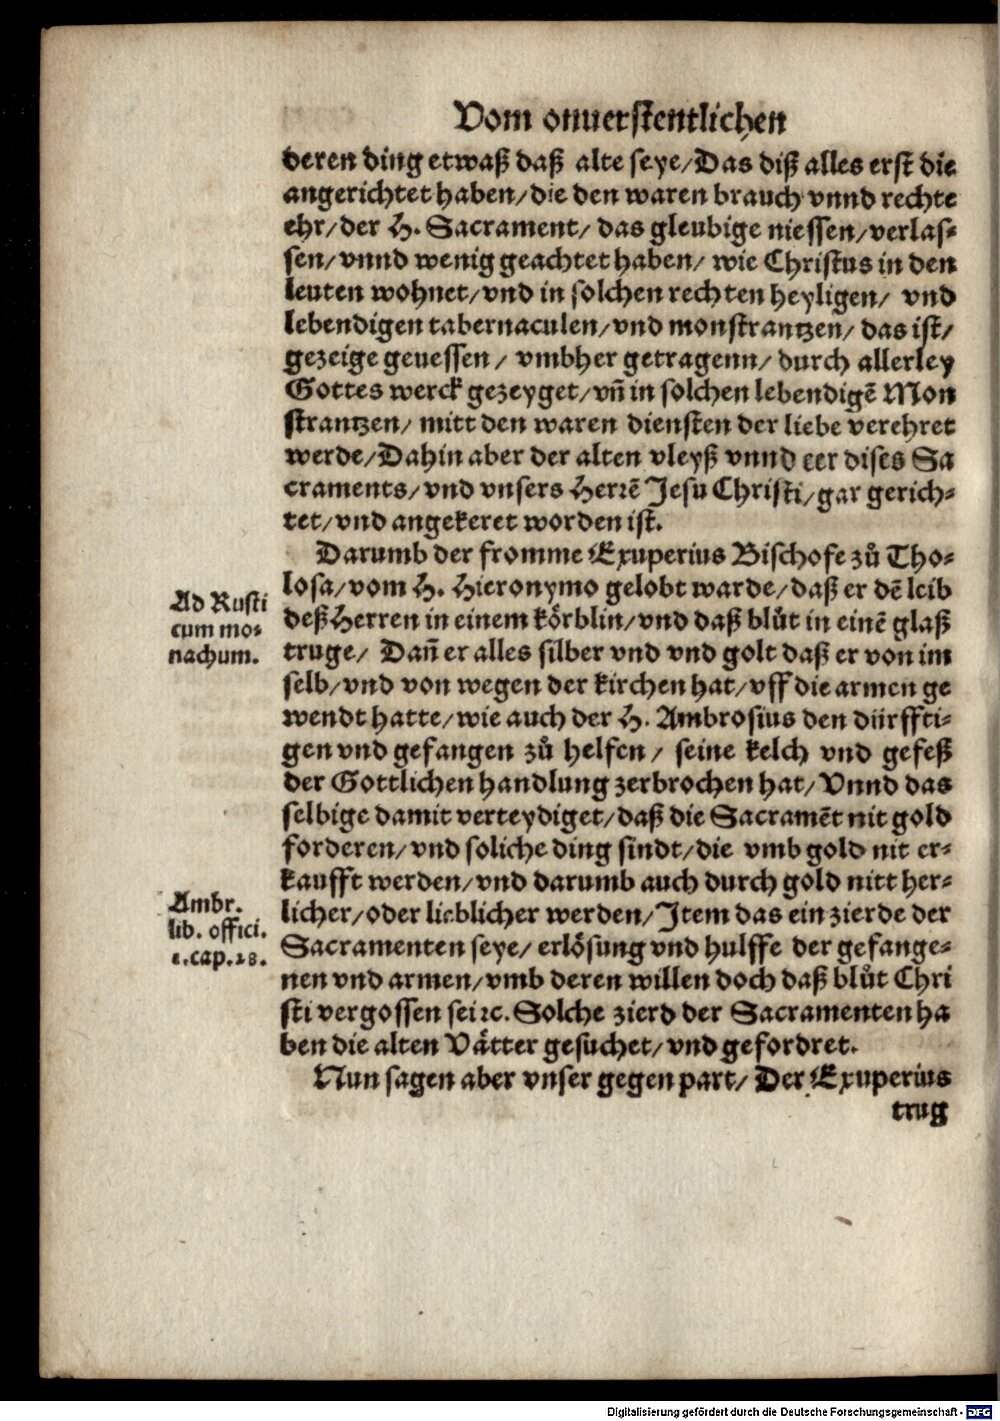 Vom onuerstentlichen
deren ding etwaß daß alte seye/Das diß alles erst die
angerichtet haben/die den waren brauch vnnd rechte
ehr/der H. Sacrament/ das gleubige niessen/verlas⸗
sen/vnnd wenig geachtet haben/ wie Christus in den
leuten wohnet/vnd in solchen rechten heyligen/ vnd
lebendigen tabernaculen/vnd monstrantzen/ das ist/
gezeige geuessen/ vmbher getragenn/ durch allerley
Gottes werck gezeyget/vñ in solchen lebendigẽ Mon
strantzen/ mitt den waren diensten der liebe verehret
werde/Dahin aber der alten vleyß vnnd eer dises Sa
craments/vnd vnsers Herrẽ Jesu Christi/gar gerich⸗
tet/vnd angekeret worden ist.
Darumb der fromme Exuperius Bischofe zů Tho⸗
losa/vom H. Hieronymo gelobt warde/daß er dẽ leib
deß Herren in einem körblin/vnd daß blůt in einẽ glaß
truge/ Dañ er alles silber vnd vnd golt daß er von im
selb/vnd von wegen der kirchen hat/vff die armen ge
wendt hatte/wie auch der H. Ambrosius den dürffti⸗
gen vnd gefangen zů helfen/ seine kelch vnd gefeß
der Gottlichen handlung zerbrochen hat/Vnnd das
selbige damit verteydiget/daß die Sacramẽt nit gold
forderen/vnd soliche ding sindt/die vmb gold nit er⸗
kaufft werden/vnd darumb auch durch gold nitt her⸗
licher/oder lieblicher werden/Item das ein zierde der
Sacramenten seye/ erlösung vnd hulffe der gefange⸗
nen vnd armen/vmb deren willen doch daß blůt Chri
sti vergossen sei ꝛc. Solche zierd der Sacramenten ha
ben die alten Vätter gesuchet/vnd gefordret.
Nun sagen aber vnser gegen part/ Der Exuperius
trug
Ad Rusti
cum mo⸗
nachum.
Ambr.
lib. offici.
1.cap.28.
Digitalisierung gefördert durch die Deutsche Forschungsgemeinschaft - DFG